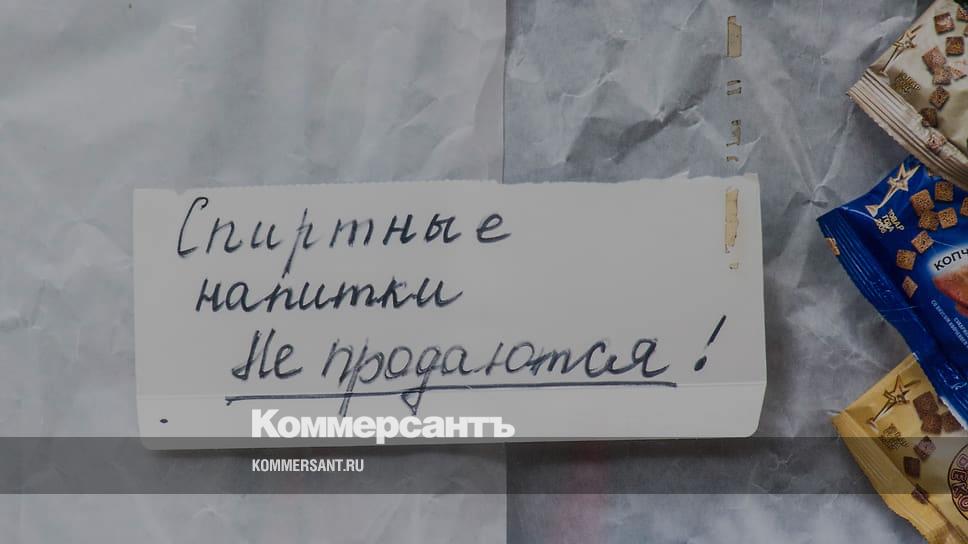 Спиртные
напитки
Не продаются!
Коммерсантъ
KOMMERSANT.RU
ТОВАР
ГОДА
КОПЧ